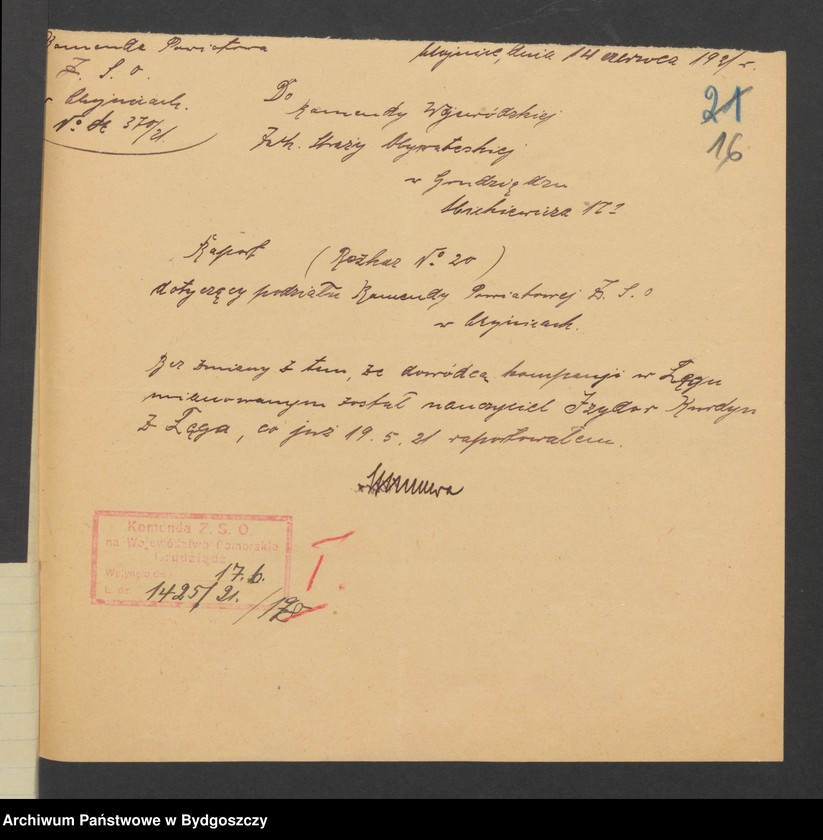 Komenda Powiatowa
Z. S. O.
w Chojnicach.
No dz 370/21.
Chojnice, dnia 14 czerwca 1921 r.
21
16
Do
Komendy Wojewódzkiej
Zwk. Straży Obywatelskiej
w Grudziądzu
Mickiewicza 17
Raport (Rozkaz No 20)
dotyczący podziału Komendy Powiatowej Z. S. O
w Chojnicach.
Bez zmiany z tem, że dowódcą kompanji w Łęgu
mianowanym został nauczyciel Izydor Kurdyn
z Łęga, co już 19. 5. 21 raportowałem.
Komenda Z. S. O.
na Województwo Pomorskie
Grudziądz
Wpłynęło dn. 17. 6.
L. dz. 1425/21.
I.
Archiwum Państwowe w Bydgoszczy